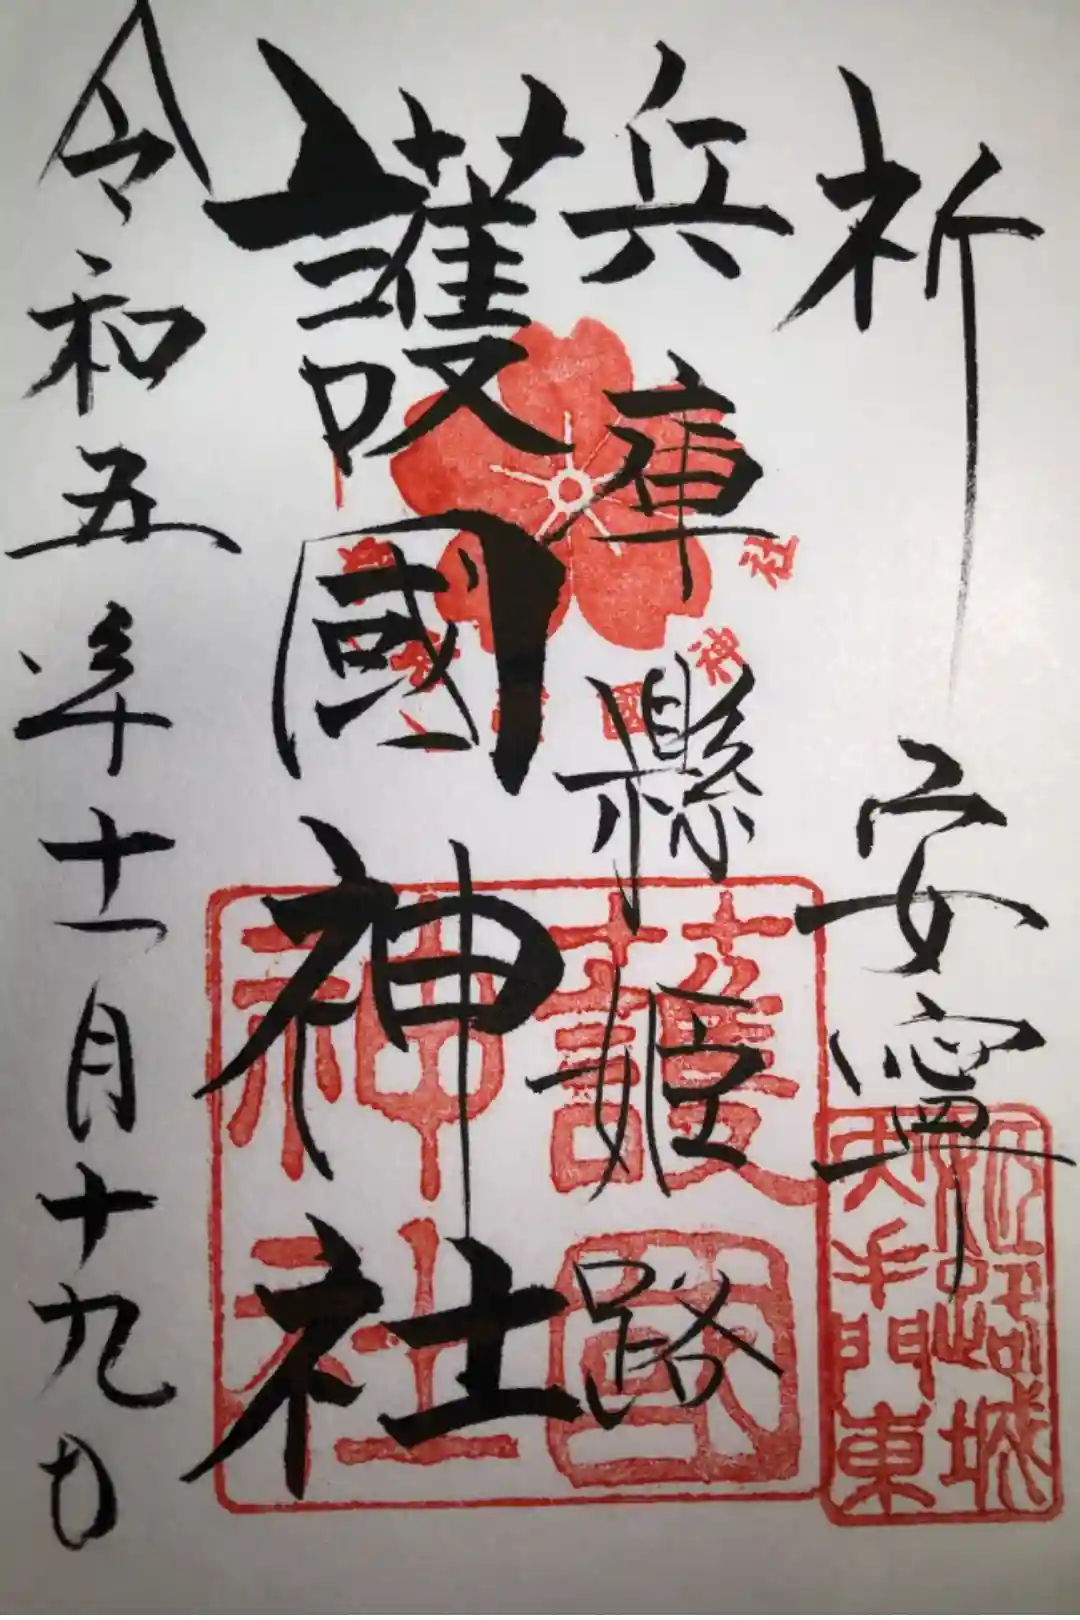 祈安寧
兵庫縣姫路
護國神社
令和五年十一月十九日
護國
神社
姫路城
大手門東